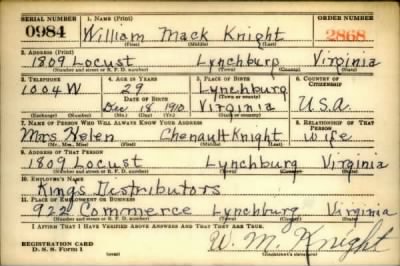 SERIAL NUMBER 1. NAME (Print) ORDER NUMBER
0984 William Mack Knight 2868
(First) (Middle) (Last)
2. ADDRESS (Print)
1809 Locust Lynchburg Virginia
(Number and street or R. F. D. number) (Town) (County) (State)
3. TELEPHONE 4. AGE IN YEARS 5. PLACE OF BIRTH 6. COUNTRY OF CITIZENSHIP
1004W 29 Lynchburg
(Town or county)
DATE OF BIRTH
Dec 18 1910 Virginia U.S.A.
(Exchange) (Number) (Mo.) (Day) (Yr.) (State or country)
7. NAME OF PERSON WHO WILL ALWAYS KNOW YOUR ADDRESS 8. RELATIONSHIP OF THAT PERSON
Mrs Helen Chenault Knight Wife
(Mr., Mrs., Miss) (First) (Middle) (Last)
9. ADDRESS OF THAT PERSON
1809 Locust Lynchburg Virginia
(Number and street or R. F. D. number) (Town) (County) (State)
10. EMPLOYER'S NAME
Kings Distributors
11. PLACE OF EMPLOYMENT OR BUSINESS
922 Commerce Lynchburg Virginia
(Number and street or R. F. D. number) (Town) (County) (State)
I AFFIRM THAT I HAVE VERIFIED ABOVE ANSWERS AND THAT THEY ARE TRUE.
REGISTRATION CARD
D. S. S. Form 1 (over) W. M. Knight
(Registrant's signature)